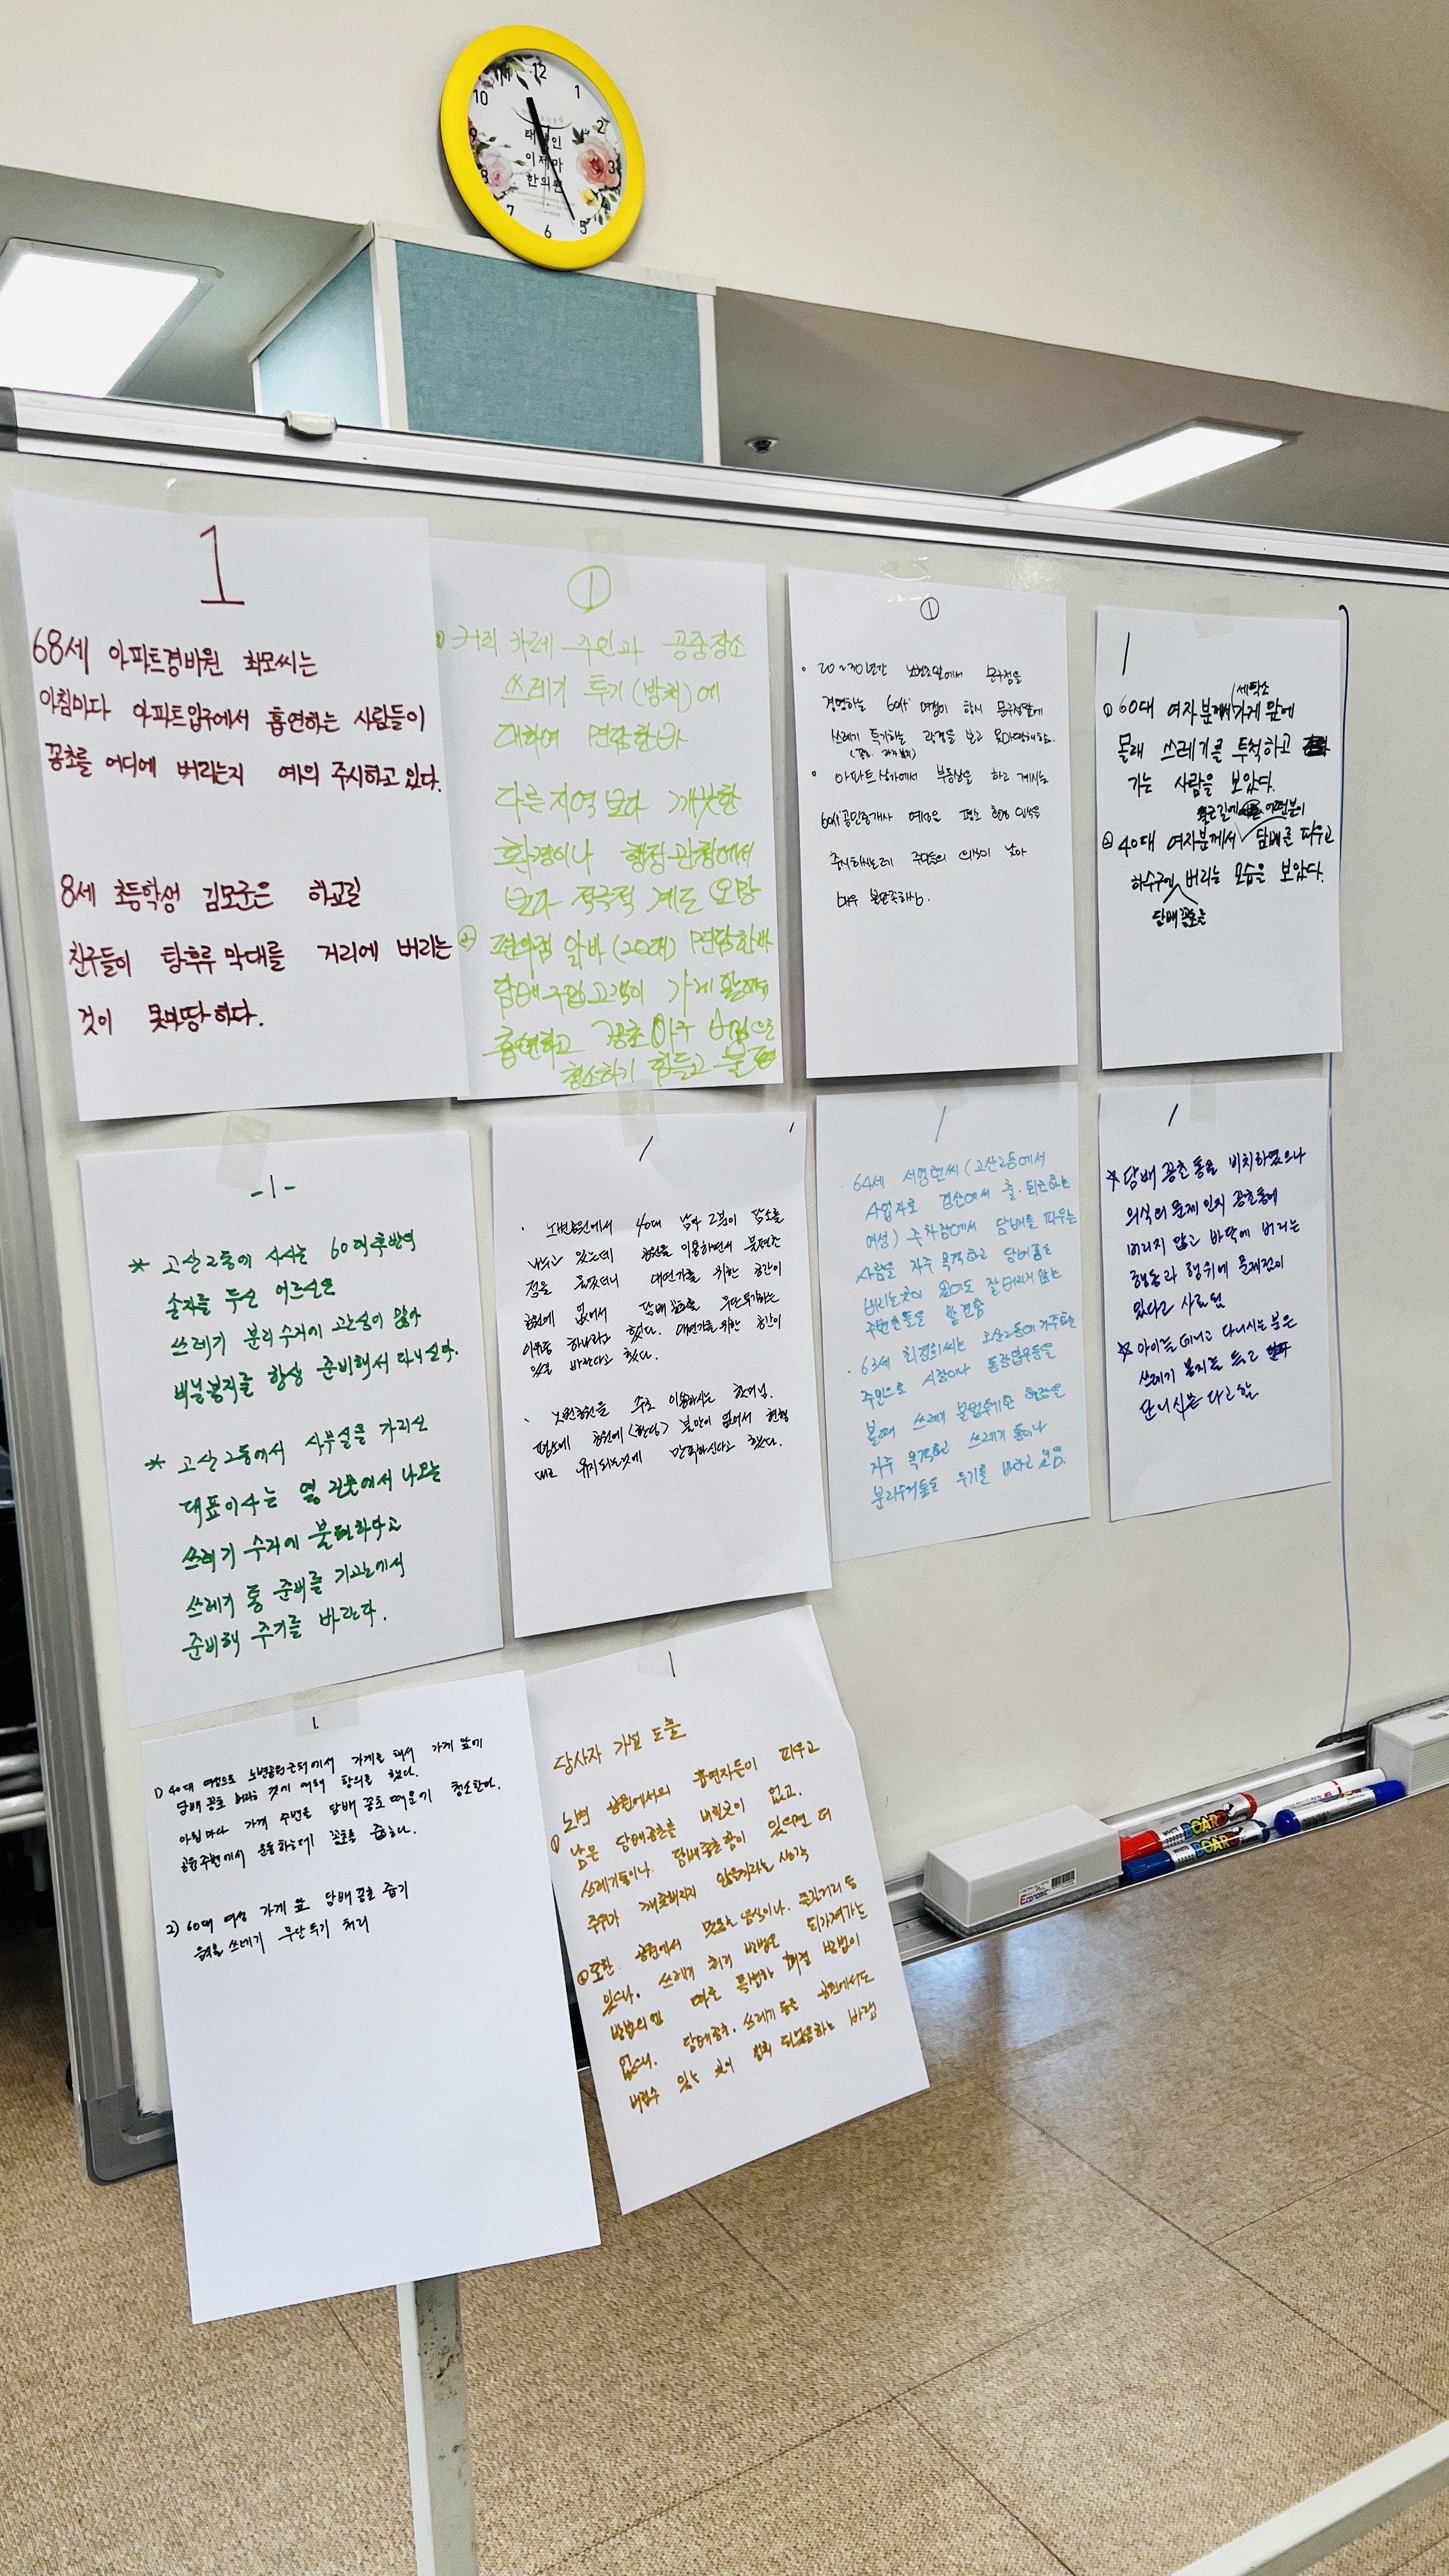 12
1
2
3
5
6
7
8
9
10
이제마
한의원
1
68세 아파트경비원 최모씨는
아침마다 아파트입구에서 흡연하는 사람들이
꽁초를 어디에 버리는지 예의 주시하고 있다.
8세 초등학생 김모군은 하교길
친구들이 탕후루 막대를 거리에 버리는
것이 못마땅하다.
①
거리 카페 주인과 공중장소
쓰레기 투기(방치)에
대하여 면담한바
다른지역 보다 깨끗한
환경이나 행정관청에서
보다 적극적 계도 요망
② 편의점 알바(20대) 면담한바
담배구입고객이 가게 앞에서
흡연하고 꽁초 마구 버림으로
청소하기 힘들고 불편
①
20~30년간 에서 문구점을
경영하는 60대 여점이 항시 문구점앞에
쓰레기 투기하는 광경을 보고
아파트상가에서 부동산을 하고 계시는
60대 공인중개사 평소 환경 인식을
중시하시는데 주민들의 의식이 낮아
매우 불만족하심.
1
① 60대 여자분께서 세탁소 가게 앞에
몰래 쓰레기를 투척하고
가는 사람을 보았다.
② 40대 여자분께서 출근길에 어떤분이 담배를 피우고
하수구에 담배꽁초를 버리는 모습을 보았다.
-1-
* 고산2동에 사시는 60대후반의
손자를 두신 어르신은
쓰레기 분리수거에 관심이 많아
비닐봉지를 항상 준비해서 다니신다.
* 고산2동에서 사무실을 가지신
대표이사는 옆 건물에서 나오는
쓰레기 수거에 불편하다고
쓰레기 통 준비를 기관에서
준비해 주기를 바란다.
1
1
노변공원에서 40대 남자 2분이 담소를
나누고 있는데 공원을 이용하면서 불편한
점을 물었더니 애연가를 위한 공간이
공원에 없어서 담배꽁초를 무단투기하는
이유중 하나라고 했다. 애연가를 위한 공간이
있길 바란다고 했다.
노변공원을 자주 이용하시는 할머님.
평소에 공원에 불만이 없어서 현행
대로 유지되는것에 만족하신다고 했다.
1
64세 서영현씨(고산2동에서
사업자로 경산에서 출·퇴근하는
여성) 주차장에서 담배를 피우는
사람을 자주 목격하고 담배꽁초
버리는곳이 있어도 잘버리지 않는
주변인들을 발견함
63세 최경희씨는 고산2동에 거주하는
주민으로 시장이나 동주민센터를
볼때 쓰레기 불법투기한 현장을
자주 목격하고 쓰레기 통이나
분리수거통을 두기를 바라고 있음.
1
* 담배 꽁초 통을 비치하였으나
의식의 문제인지 꽁초통에
버리지 않고 바닥에 버리는
행동과 행위에 문제점이
있다고 사료됨
* 아이를 데리고 다니시는 분은
쓰레기 봉지를 들고
다니시는 다고 함
1.
1) 40대 여성으로 노변공원근처에서 가게를 해서 가게 앞에
담배 꽁초 버리는 것에 대해 항의를 했다.
아침마다 가게 주변을 담배 꽁초 때문에 청소한다.
공원주변에서 운동하는데 꽁초를 줍는다.
2) 60대 여성 가게 앞 담배 꽁초 줍기
음식물 쓰레기 무단투기 처리
1
당사자 가설 도출
① 노변 공원에서의 흡연자들이 피우고
남은 담배꽁초를 버릴곳이 없고.
쓰레기통이나. 담배꽁초함이 있으면 더
주위가 깨끗해지지 않을까라는 생각
② 또한 공원에서 먹는 음식이나. 주전부리 등
있으나. 쓰레기 처리 방법은 되가져가는
방법외엔 따로 특별한 해결 방법이
없으니. 담배꽁초. 쓰레기 등을 공원에서도
버릴수 있는 곳이 설치 되었으면하는 바램
BOARD
BOARD